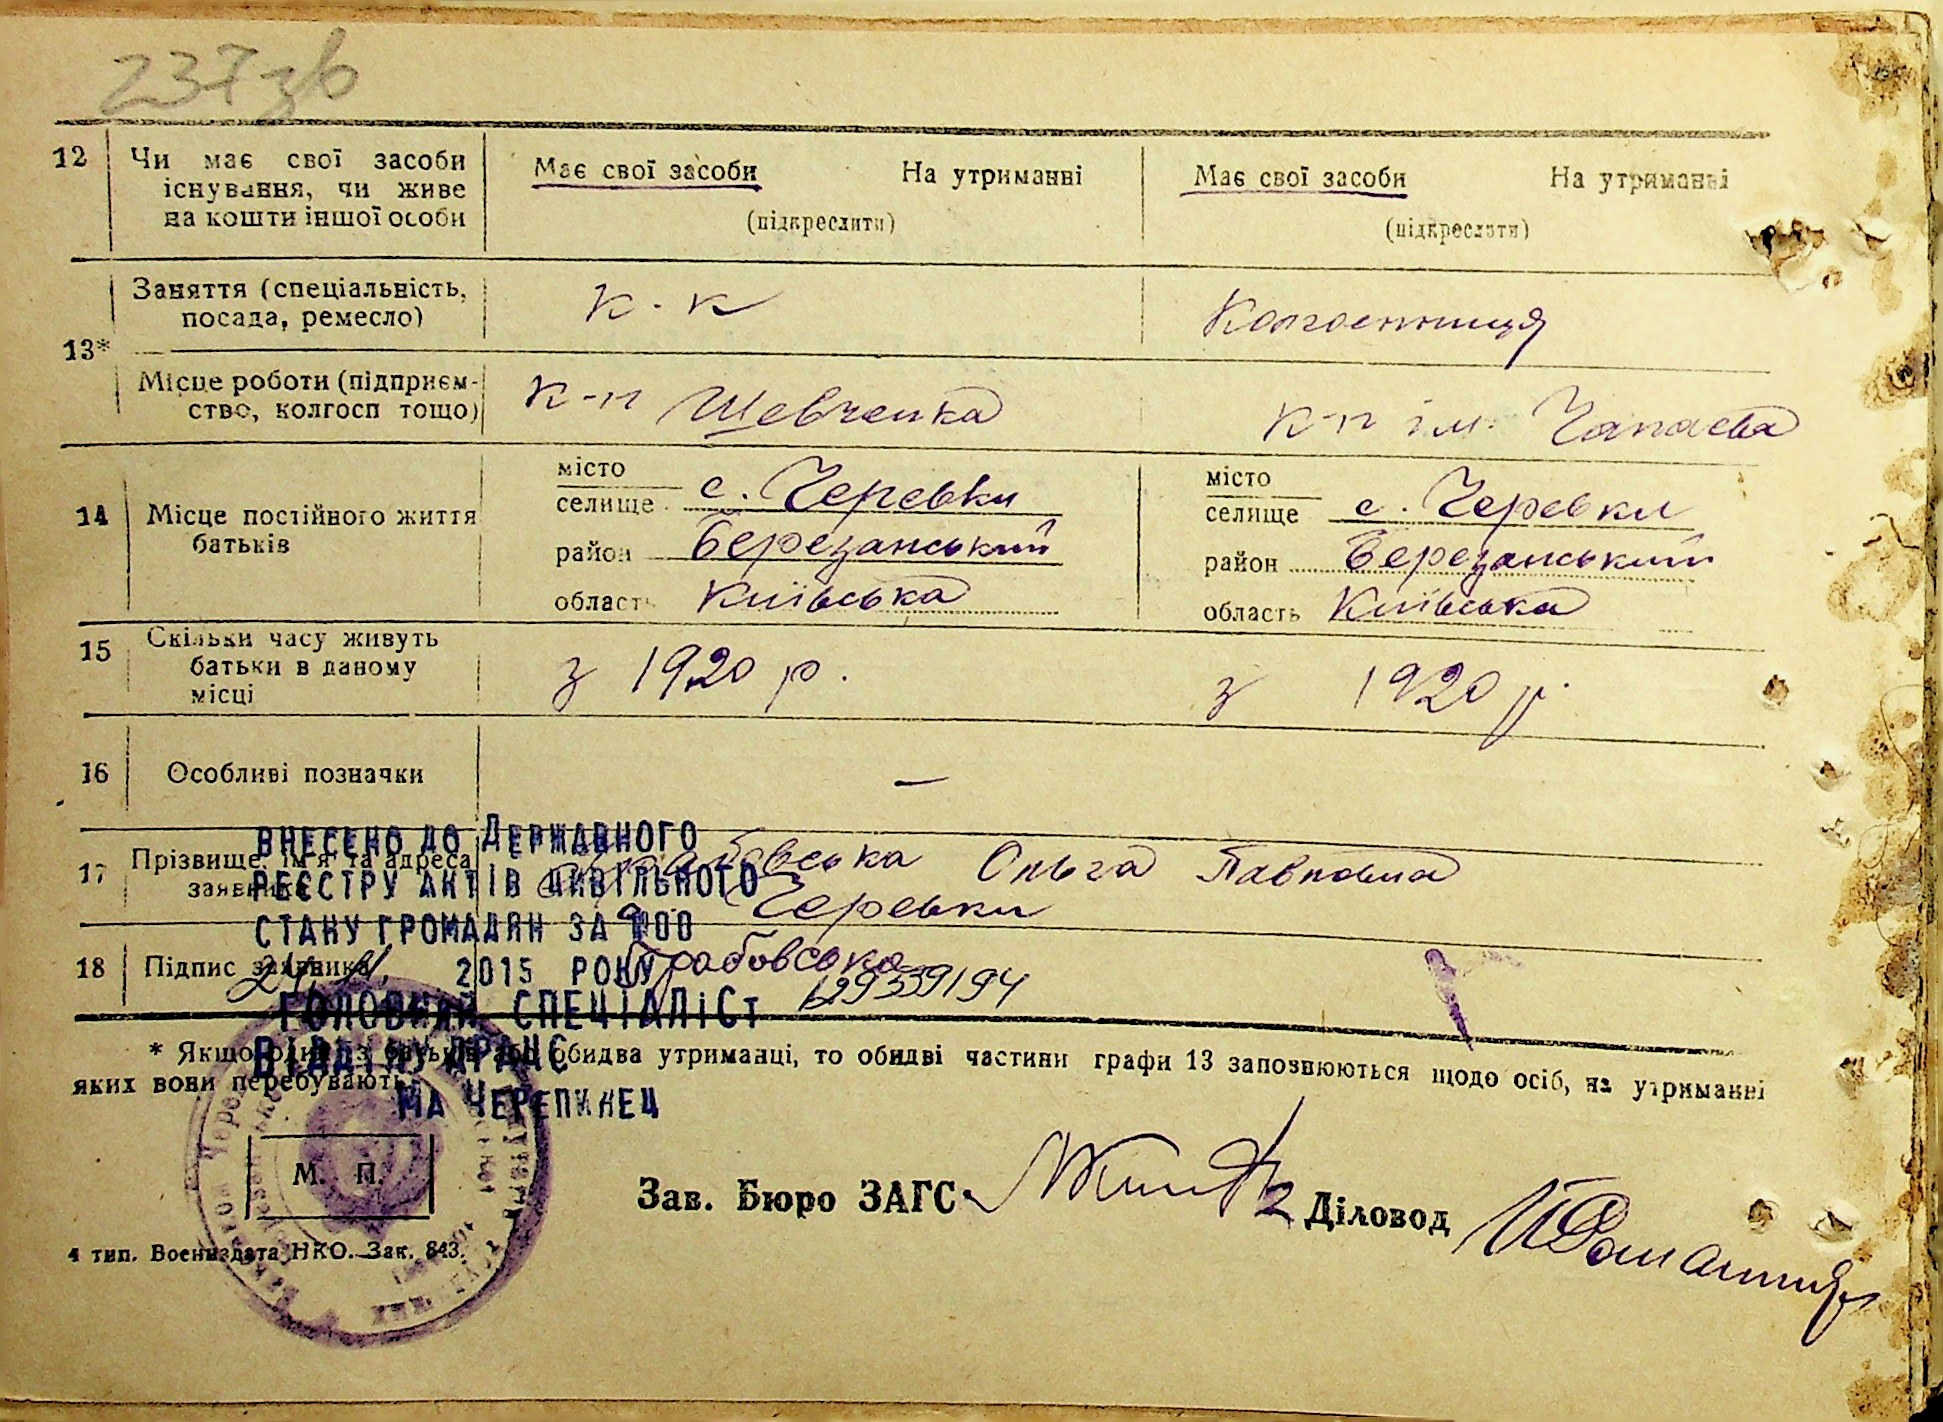 237 зв
12 Чи має свої засоби існування, чи живе на кошти іншої особи
Має свої засоби На утриманні
(підкреслити)
Має свої засоби На утриманні
(підкреслити)
13*
Заняття (спеціальність, посада, ремесло)
к-к
Колгоспниця
Місце роботи (підприємство, колгосп тощо)
к-п Шевченка
к-п ім. Чапаєва
14 Місце постійного життя батьків
місто
селище с. Черевки
район Березанський
область Київська
місто
селище с. Черевки
район Березанський
область Київська
15 Скільки часу живуть батьки в даному місці
з 1920 р.
з 1920 р.
16 Особливі позначки
—
17 Прізвище, ім'я та адреса заявника
Грабовська Ольга Павловна
с. Черевки
18 Підпис заявника
Грабовська
ВНЕСЕНО ДО ДЕРЖАВНОГО
РЕЄСТРУ АКТІВ ЦИВІЛЬНОГО
СТАНУ ГРОМАДЯН ЗА №00
2015 РОКУ
129339194
ГОЛОВНИЙ СПЕЦІАЛІСТ
ВІДДІЛУ ДРАЦС
МА ЧЕРЕПИНЕЦ
* Якщо один з батьків або обидва утриманці, то обидві частини графи 13 заповнюються щодо осіб, на утриманні
яких вони перебувають.
М. П.
Зав. Бюро ЗАГС
Діловод
4 тип. Воениздата НКО. Зак. 843.